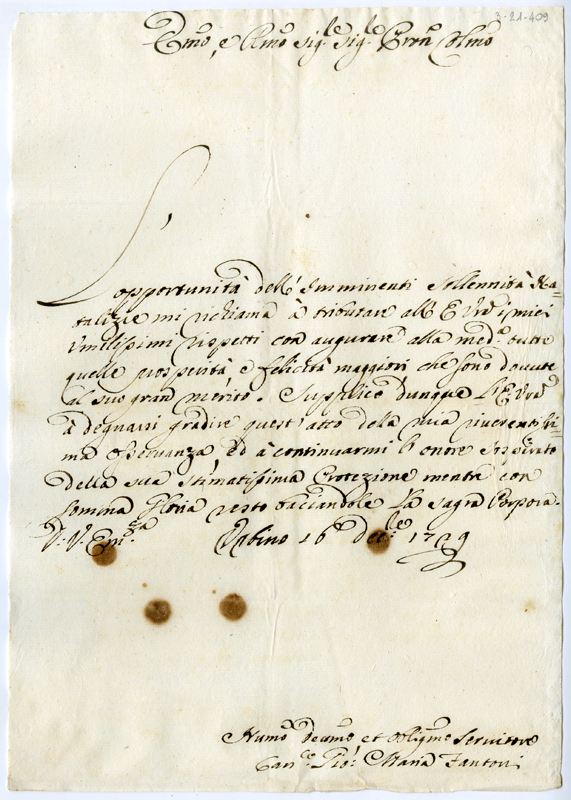 3-21-409
Emõ, e Rmõ Sig.re Sig.re Pron Colmõ
L'opportunità dell'Imminenti Sollennità Na=
talizie mi richiama à tributare all'E Vrã i miei
Umilissimi rispetti con augurare alla med.ª tutte
quelle prosperità, e felicità maggiori che sono dovute
al suo gran merito. Supplico dunque l'E. Vrã
à degnarsi gradire quest'atto della mia riverentissi=
ma osservanza, ed à continuarmi l'onore sospirato
della sua stimatissima Protezione mentre con
somma Gloria resto baciandole La sagra Porpora.
D: V: Em.za Urbino 16 Dec.e 1729
Humõ Devmõ et Obligmõ Servitore
Can.co Gio: Maria Fantoni